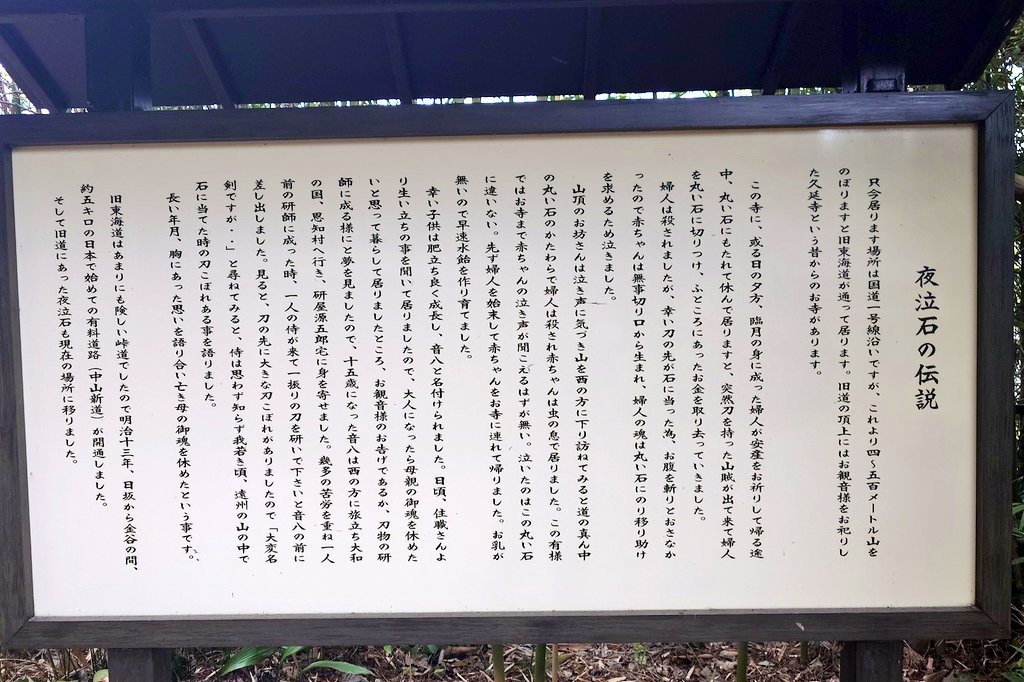 夜泣石の伝説
只今居ります場所は国道一号線沿いですが、これより四～五百メートル山を
のぼりますと旧東海道が通って居ります。旧道の頂上にはお観音様をお祀りし
た久延寺という昔からのお寺があります。
この寺に、或る日の夕方、臨月の身に成った婦人が安産をお祈りして帰る途
中、丸い石にもたれて休んで居りますと、突然刀を持った山賊が出て来て婦人
を丸い石に切りつけ、ふところにあったお金を取り去っていきました。
婦人は殺されましたが、幸い刀の先が石に当った為、お腹を斬りとおさなか
ったので赤ちゃんは無事切り口から生まれ、婦人の魂は丸い石にのり移り助け
を求めるため泣きました。
山頂のお坊さんは泣き声に気づき山を西の方に下り訪ねてみると道の真ん中
の丸い石のかたわらで婦人は殺され赤ちゃんは虫の息で居りました。この有様
ではお寺まで赤ちゃんの泣き声が聞こえるはずが無い。泣いたのはこの丸い石
に違いない。先ず婦人を始末して赤ちゃんをお寺に連れて帰りました。お乳が
無いので早速水飴を作り育てました。
幸い子供は肥立ち良く成長し、音八と名付けられました。日頃、住職さんよ
り生い立ちの事を聞いて居りましたので、大人になったら母親の御魂を休めた
いと思って暮らして居りましたところ、お観音様のお告げであるか、刃物の研
師に成る様にと夢を見ましたので、十五歳になった音八は西の方に旅立ち大和
の国、恩知村へ行き、研屋源五郎宅に身を寄せました。幾多の苦労を重ね一人
前の研師に成った時、一人の侍が来て一振りの刀を研いで下さいと音八の前に
差し出しました。見ると、刀の先に大きな刃こぼれがありましたので「大変名
剣ですが・・」と尋ねてみると、侍は思わず知らず我若き頃、遠州の山の中で
石に当てた時の刃こぼれある事を語りました。
長い年月、胸にあった思いを語り合い亡き母の御魂を休めたという事です。
旧東海道はあまりにも険しい峠道でしたので明治十三年、日坂から金谷の間、
約五キロの日本で始めての有料道路（中山新道）が開通しました。
そして旧道にあった夜泣石も現在の場所に移りました。